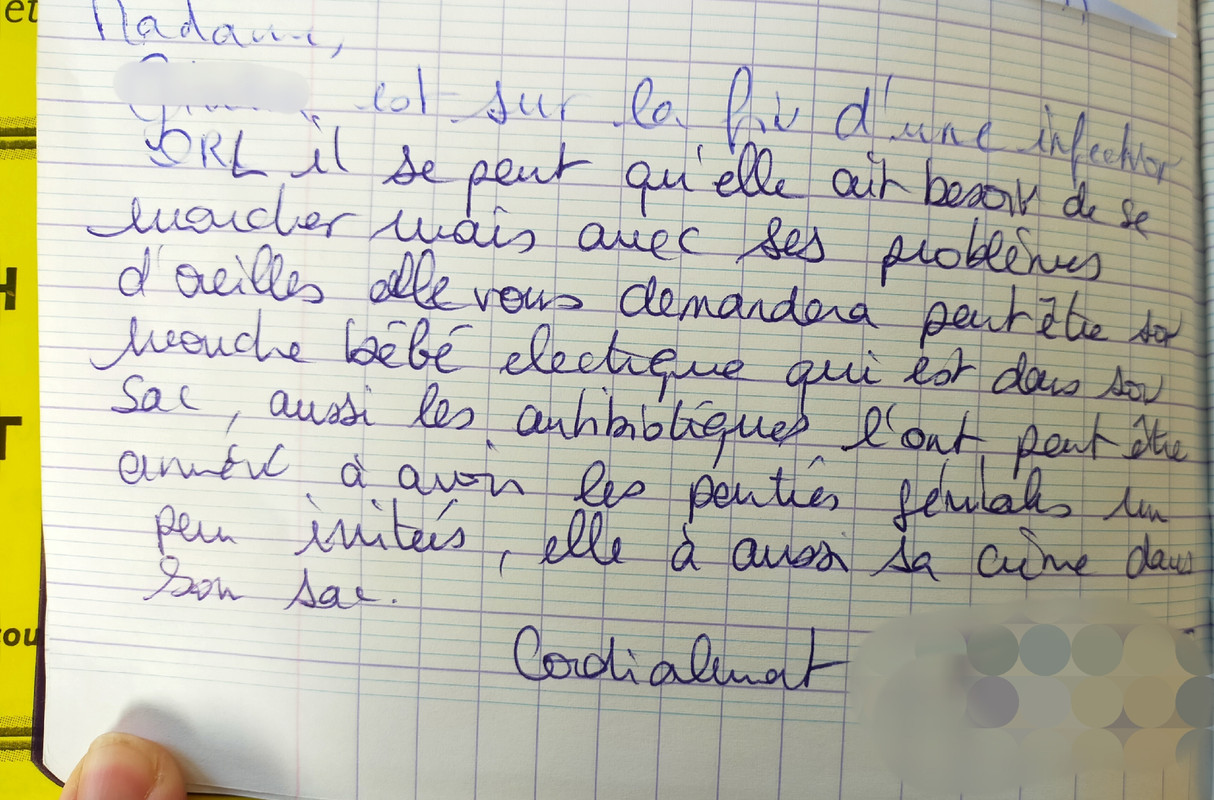 et
Madame,
est sur la fin d'une infection
ORL il se peut qu'elle ait besoin de se
moucher mais avec ses problèmes
d'oreilles elle vous demandera peut être son
mouche bébé electrique qui est dans son
sac, aussi les antibiotiques l'ont peut être
amené à avoir les parties génitales un
peu irritées, elle à aussi sa crème dans
son sac.
Cordialement
H
T
ou